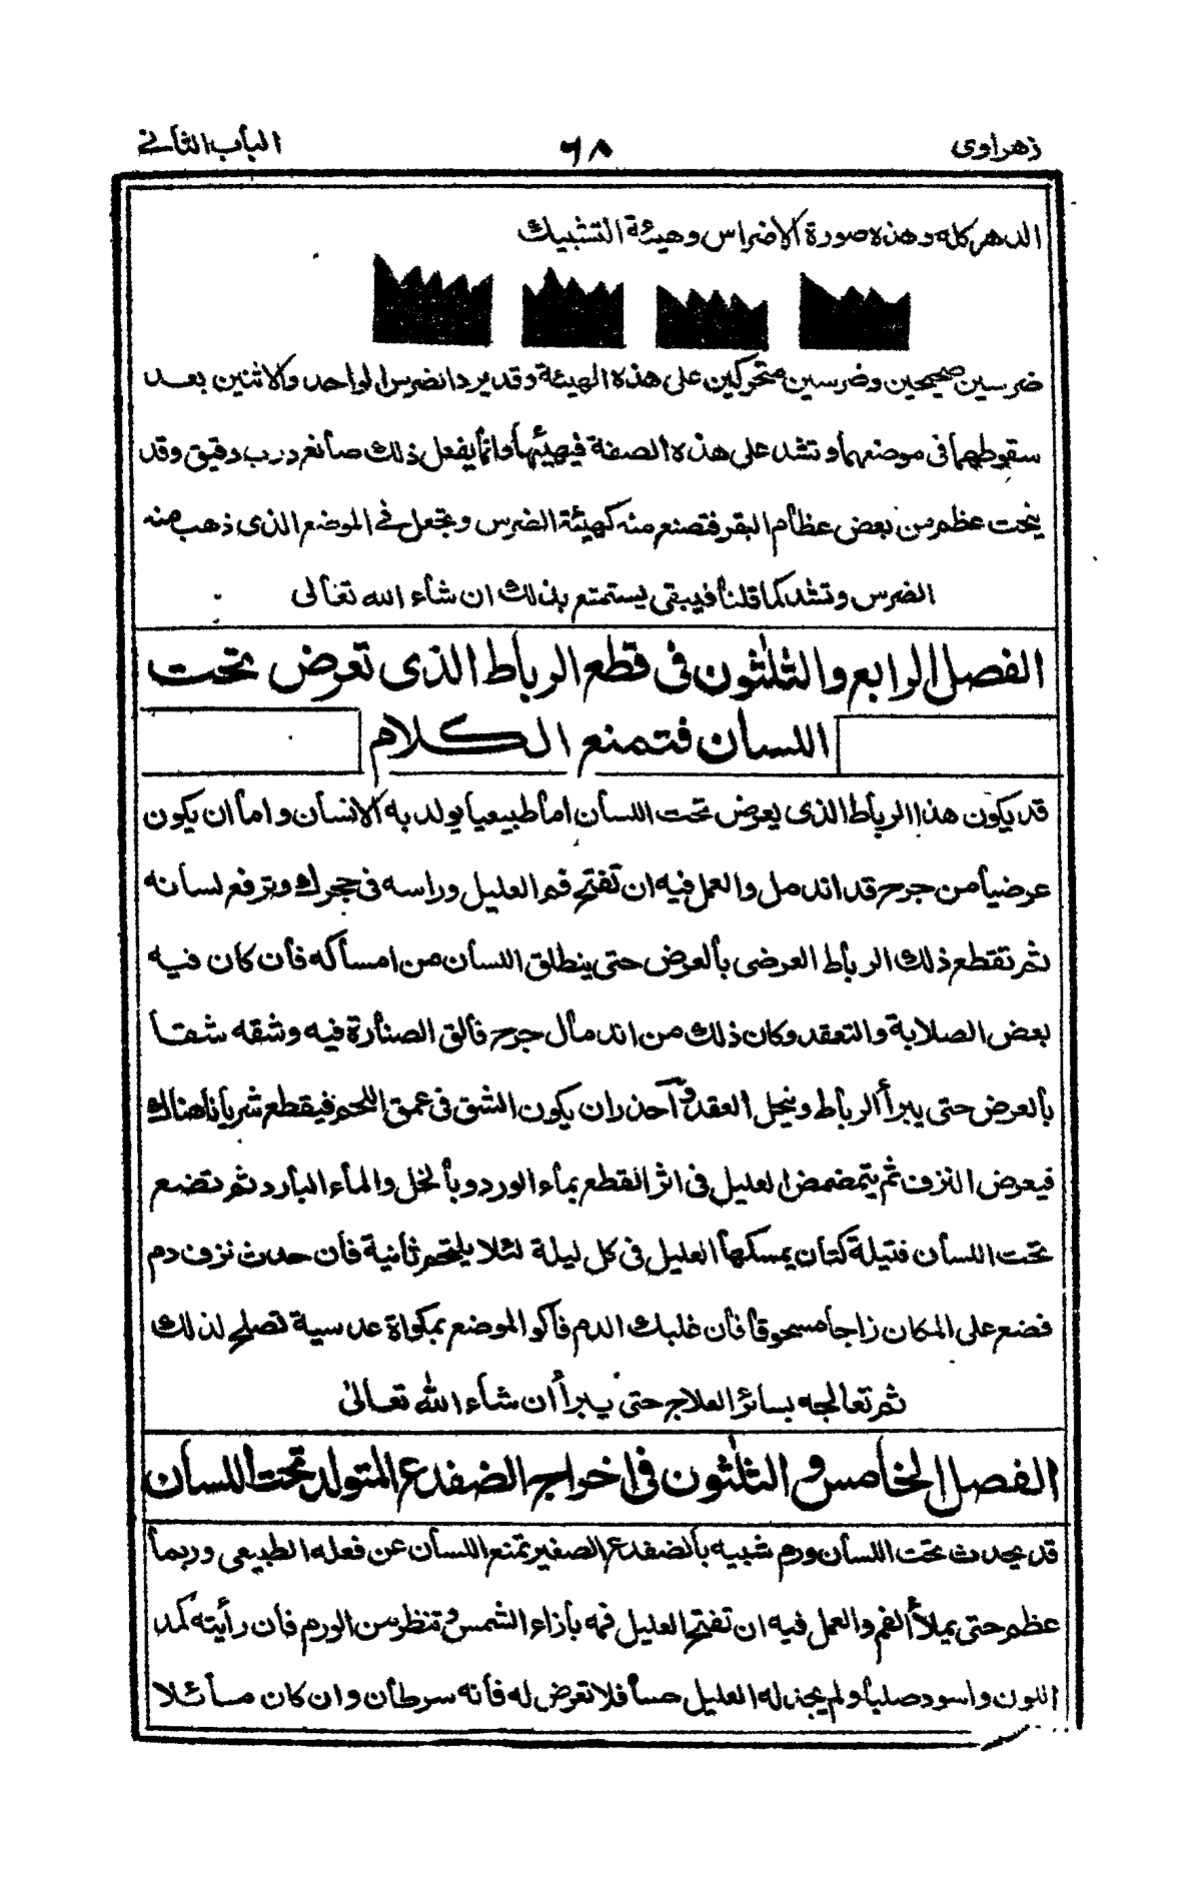 زهراوی ۶۸ الباب الثانے
الدهر كله وهذه صورة الاضراس وهيئة التشبيك
ضرسين صحيحين وضرسين متحركين على هذه الهيئة وقد يرد الضرس الواحد والاثنين بعد
سقوطهما فى موضعهما وتشد على هذه الصفة فيهيئها وانما يفعل ذلك صانع درب دقيق وقد
ينحت عظم من بعض عظام البقر فتصنع منه كهيئة الضرس وتجعل فے الموضع الذى ذهب منه
الضرس وتشد كما قلنا فيبقى يستمتع بذلك ان شاء الله تعالى
الفصل الرابع والثلثون فى قطع الرباط الذى تعرض تحت
اللسان فتمنع الكلام
قد يكون هذا الرباط الذى يعرض تحت اللسان اما طبيعيا يولد به الانسان واما ان يكون
عرضيا من جرح قد اندمل والعمل فيه ان تفتح فم العليل وراسه فى حجرك وترفع لسانه
ثم تقطع ذلك الرباط العرضى بالعرض حتى ينطلق اللسان من امساكه فان كان فيه
بعض الصلابة والتعقد وكان ذلك من اندمال جرح فالق الصنارة فيه وشقه شقا
بالعرض حتى يبرأ الرباط وينحل العقد وآحذر ان يكون الشق فى عمق اللحم فيقطع شريانا هناك
فيعرض النزف ثم يتمضمض العليل فى اثر القطع بماء الورد وبالخل والماء البارد ثم تضع
تحت اللسان فتيلة كتان يمسكها العليل فى كل ليلة لئلا يلتحم ثانية فان حدث نزف دم
فضع على المكان زاجا مسحوقا فان غلبك الدم فاكو الموضع بمكواة عدسية تصلح لذلك
ثم تعالجه بسائر العلاج حتى يبرأ ان شاء الله تعالىٰ
الفصل الخامس و الثلثون فى اخراج الضفدع المتولد تحت اللسان
قد يحدث تحت اللسان ورم شبيه بالضفدع الصغير تمنع اللسان عن فعله الطبيعى وربما
عظم حتى يملأ الفم والعمل فيه ان تفتح العليل فمه بازاء الشمس وتنظر من الورم فان رأيته كمد
اللون واسود صلبا ولم يجد له العليل حسا فلا تعرض له فانه سرطان وان كان مائلا